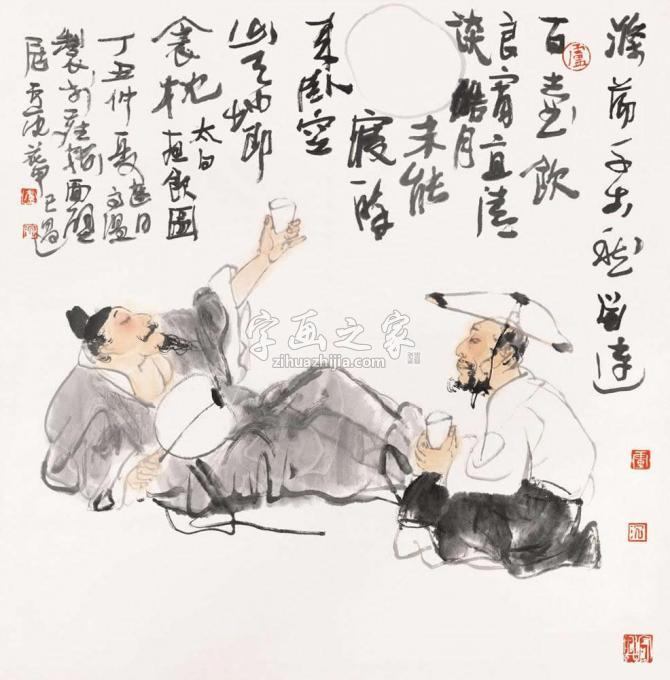 滌蕩千古愁留連
百壺飲
良宵宜清
談皓月
未能
寢醉
來臥空
山天地即
衾枕
太白 飲圖
丁丑仲夏 日高温
製於 面壁
居
字画之家
zihuazhijia.com